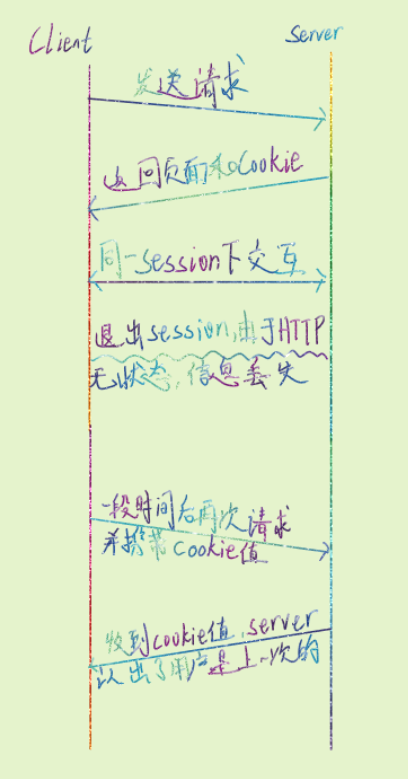 Client
Server
发送请求
返回页面和Cookie
同一session下交互
退出session,由于HTTP
无状态,信息丢失
一段时间后再次请求
并携带cookie值
收到cookie值,server
认出了用户是上一次的